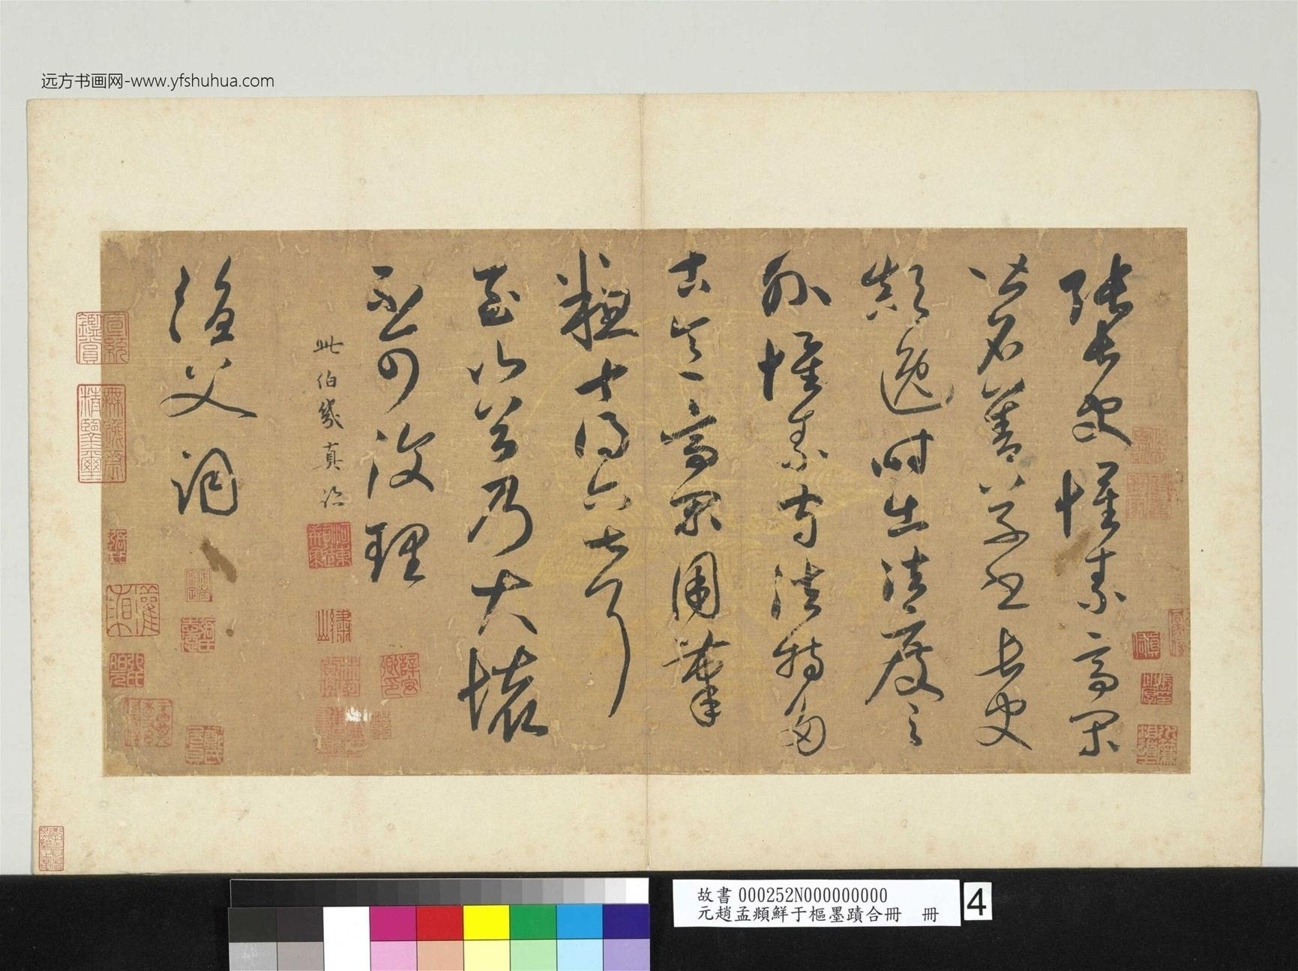 远方书画网-www.yfshuhua.com
張長史懷素高閑
皆名善草書長史
顛逸時出法度之
外懷素守法特多
古意高閑用筆
粗十得六七耳
至山谷乃大壞
不可復理
此伯幾真跡
父
故書 000252N000000000
元趙孟頫鮮于樞墨蹟合冊 冊
4